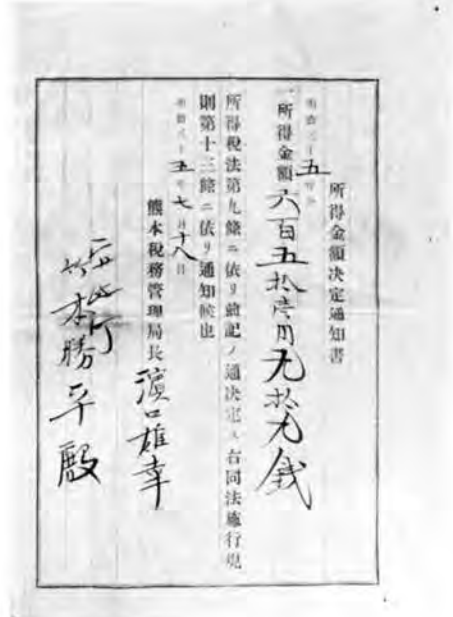 所得金額決定通知書
明治三十五年分
一所得金額六百五拾壱円九拾九銭
所得税法第九條ニ依リ前記ノ通決定ス右同法施行規
則第十三條ニ依リ通知候也
明治三十五年七月十八日
熊本税務管理局長 濱口雄幸
本勝平殿